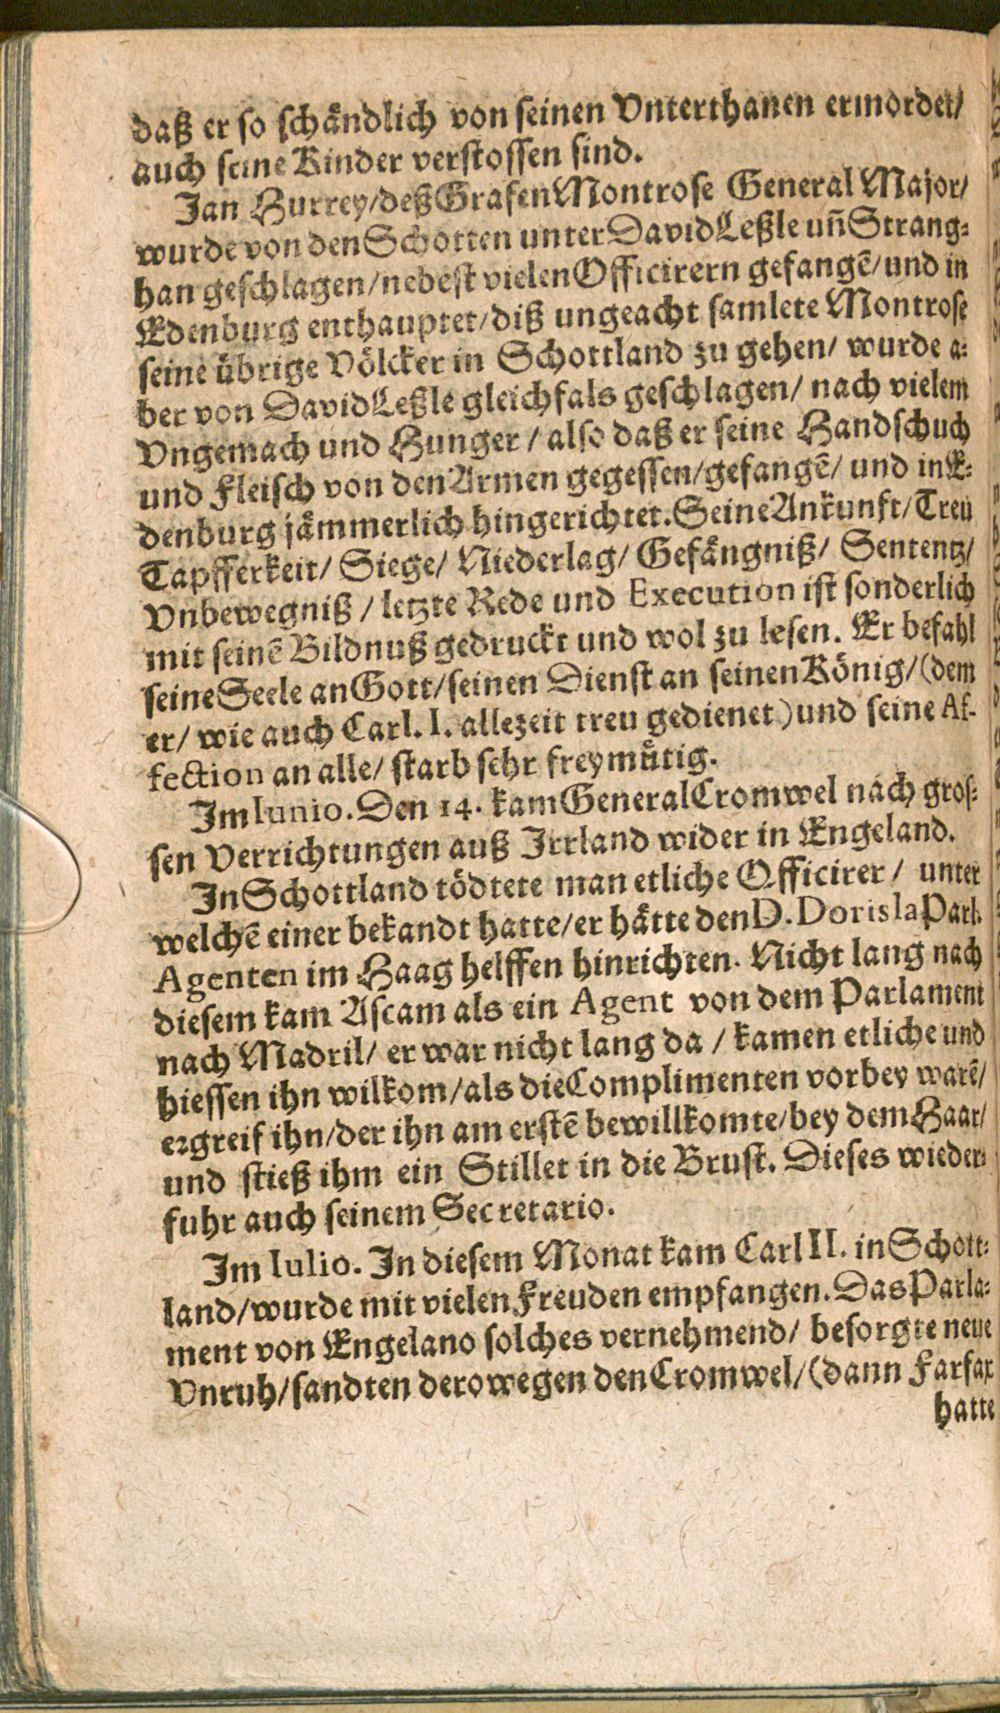 daß er so schändlich von seinen Vnterthanen ermordet/
auch seine Kinder verstossen sind.
Jan Hurrey/deß Grafen Montrose General Major/
wurde von den Schotten unter David Leßle uñ Strang⸗
han geschlagen/nebest vielen Officirern gefangẽ/und in
Edenburg enthauptet/diß ungeacht samlete Montrose
seine übrige Völcker in Schottland zu gehen/ wurde a⸗
ber von David Leßle gleichfals geschlagen/ nach vielem
Vngemach und Hunger / also daß er seine Handschuch
und Fleisch von den Armen gegessen/gefangẽ/ und in E⸗
denburg jämmerlich hingerichtet. Seine Ankunft/Treu
Tapfferkeit/ Siege/ Niederlag/ Gefängniß/ Sententz/
Vnbewegniß / letzte Rede und Execution ist sonderlich
mit seinẽ Bildnuß gedruckt und wol zu lesen. Er befahl
seine Seele an Gott/seinen Dienst an seinen König/(dem
er/ wie auch Carl. I. allezeit treu gedienet) und seine Af-
fection an alle/ starb sehr freymütig.
Im Iunio. Den 14. kam General Cromwel nach gros⸗
sen Verrichtungen auß Irrland wider in Engeland.
In Schottland tödtete man etliche Officirer / unter
welchẽ einer bekandt hatte/er hätte den D. Dorisla Parl.
Agenten im Haag helffen hinrichten. Nicht lang nach
diesem kam Ascam als ein Agent von dem Parlament
nach Madril/ er war nicht lang da / kamen etliche und
hiessen ihn wilkom/als die Complimenten vorbey warẽ/
ergreif ihn/der ihn am erstẽ bewillkomte/bey dem Haar/
und stieß ihm ein Stillet in die Brust. Dieses wieder⸗
fuhr auch seinem Secretario.
Im Iulio. In diesem Monat kam Carl II. in Schott⸗
land/wurde mit vielen Freuden empfangen. Das Parla⸗
ment von Engelano solches vernehmend/ besorgte neue
Vnruh/sandten derowegen den Cromwel/(dann Farfax
hatte